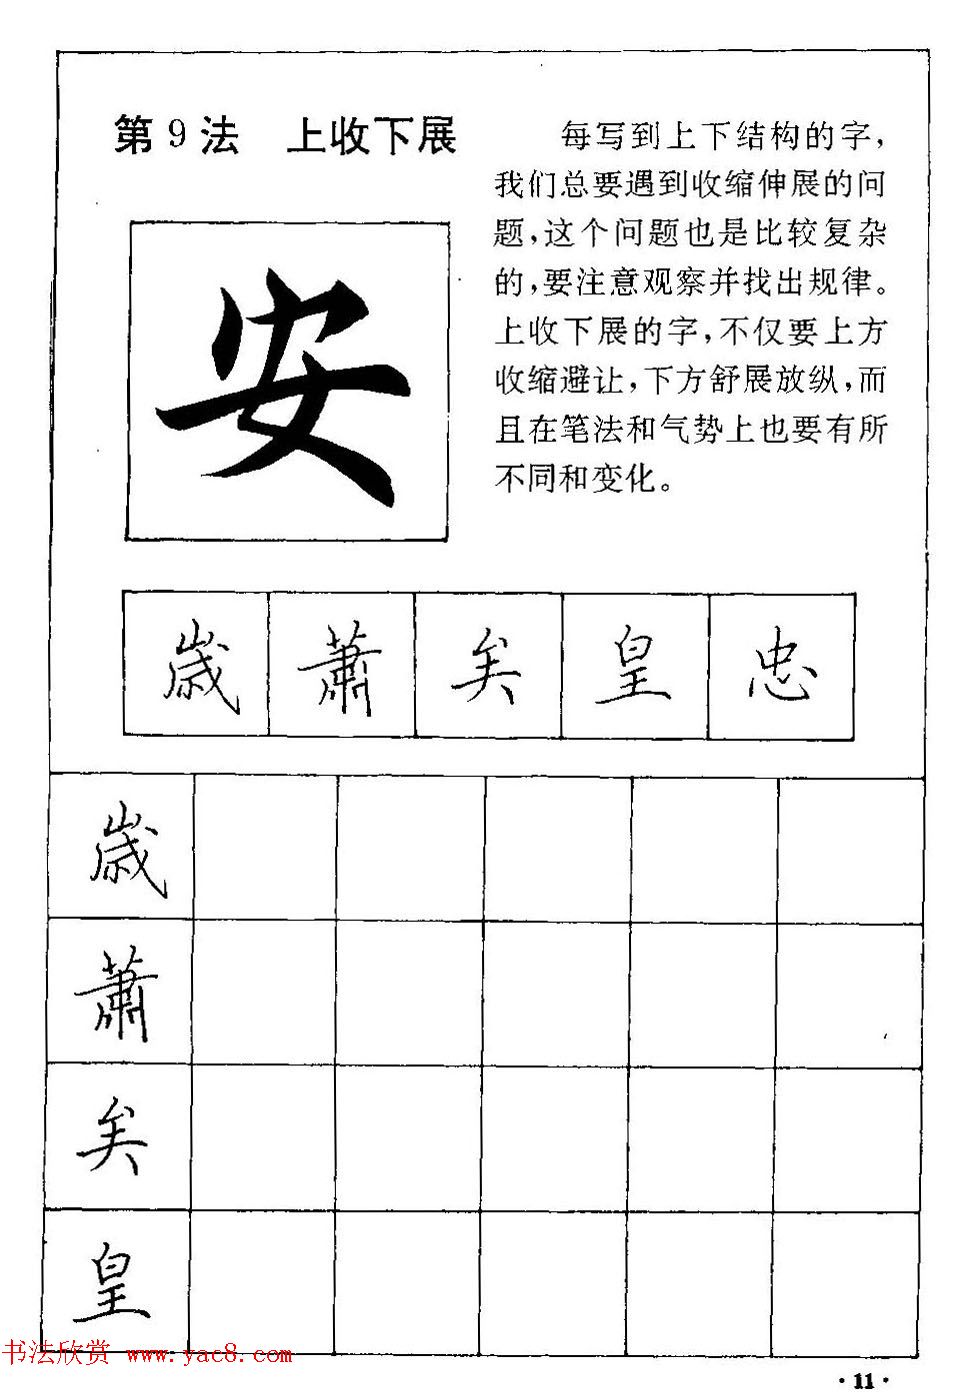 第9法 上收下展
每写到上下结构的字，
我们总要遇到收缩伸展的问
题，这个问题也是比较复杂
的，要注意观察并找出规律。
上收下展的字，不仅要上方
收缩避让，下方舒展放纵，而
且在笔法和气势上也要有所
不同和变化。
安
歲 蕭 矣 皇 忠
歲
蕭
矣
皇
书法欣赏 www.yac8.com
·11·